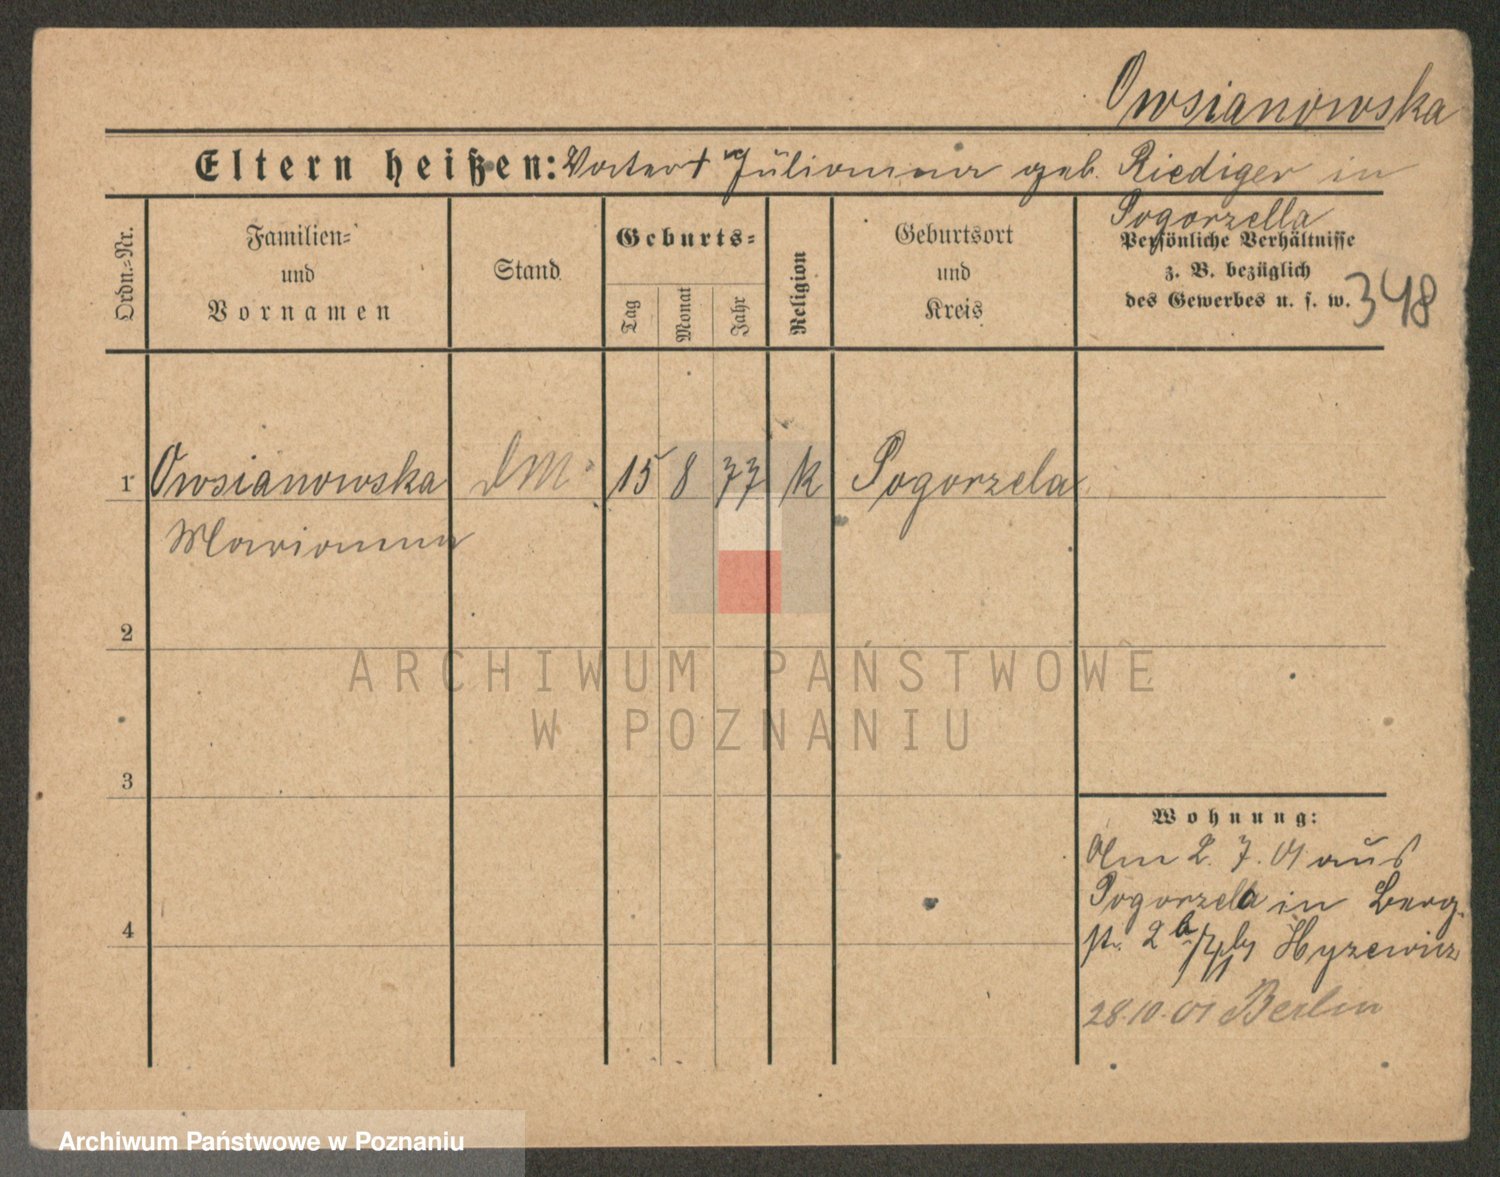 Owsianowska
Eltern heißen: Vater † M. Julianna geb. Riediger in
Pogorzella
Ordn.=Nr.
Familien=
und
Vornamen
Stand
Geburts=
Tag
Monat
Jahr
Religion
Geburtsort
und
Kreis
Persönliche Verhältnisse
z. B. bezüglich
des Gewerbes u. s. w.
348
1 Owsianowska DM 15 8 77 k Pogorzela
Marianna
2
ARCHIWUM PAŃSTWOWE
W POZNANIU
3
Wohnung:
Am 2. 7. 01 aus
Pogorzela in Berg
str. 2b by Hyzewicz
4
28.10.01 Berlin
Archiwum Państwowe w Poznaniu